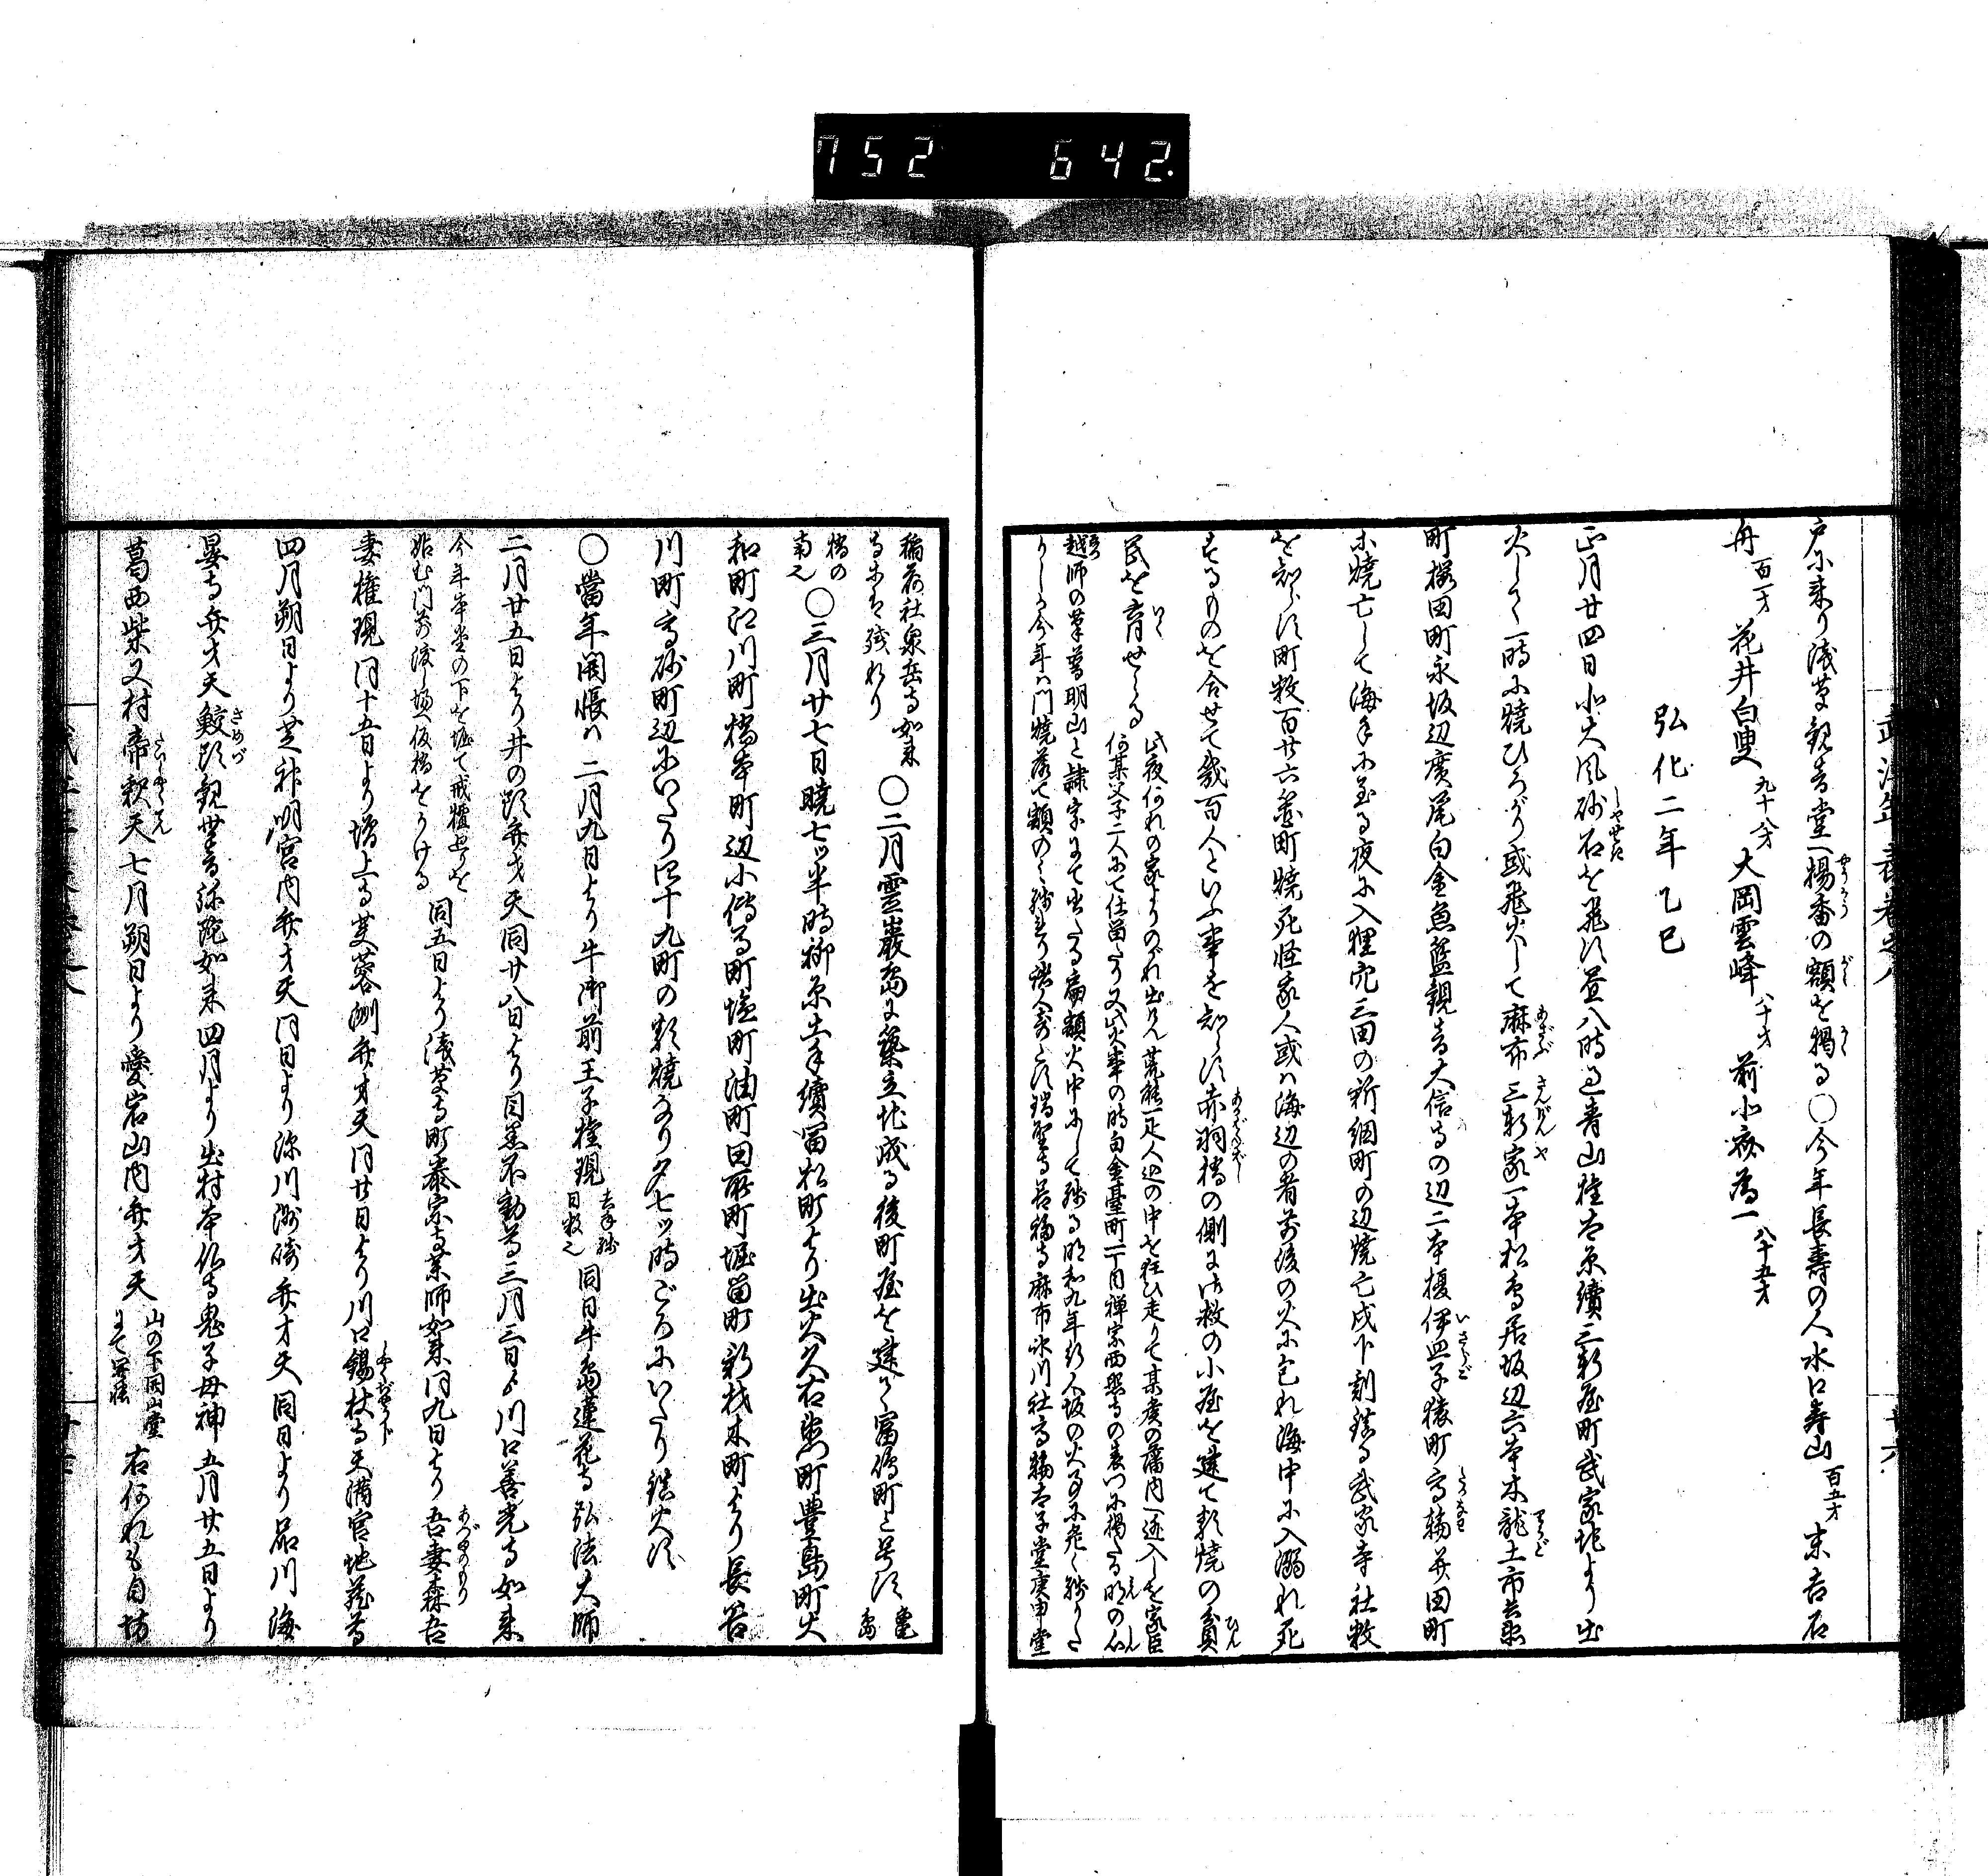 752 642.
戸に来り浅草観音堂へ揚香の額を掲る○今年長寿の人水口寿山百五才 末吉石
舟百一才 花井白叟九十八才 大岡雲峰八十才 前北斎為一八十五才
弘化二年乙巳
正月廿四日北大風砂石を飛す昼八時過青山権太原続三軒屋町武家地より出
火しく一時に焼ひろがり或飛火して麻布三軒家一本松鳥居坂辺六本木龍土市兵衛
町桜田町永坂辺広尾白金魚籃観音大信寺の辺二本榎伊皿子猿町高輪并田町
に焼亡して海手に至る夜に入狸穴三田の新網町の辺焼亡戌下刻鎮る武家寺社数
を知らす町数百廿六箇町焼死怪我人或ハ海辺の者前後の火に包れ海中に入溺れ死
するものを合せて幾百人といふ事を知らす赤羽橋の側に御救の小屋を建て類焼の貧
民を育せらる
此夜何れの家よりのがれ出けん荒熊一疋人込の中を狂ひ走りて某侯の藩内へ逐入しを家臣
何某父子二人にて仕留たり又此火事の時白金台町一丁目禅宗西照寺の表門に掲たる明の心
越師の筆万明山と隷字にて出たる扁額火中にして残る明和九年行人坂の火事に危く残りた
りしか今年ハ門焼落て額のミ残れり諸人奇とす瑞聖寺長福寺麻布氷川社高輪太子堂庚申堂
稲荷社泉岳寺如来
寺等は残れり
○二月霊巌島に築立地成る後町屋を建て富島町と号す
亀島
橋の
南也
○三月廿七日暁七ッ半時柳原土手続冨松町より出火久右衛門町豊島町大
和町江川町橋本町辺小伝馬町塩町油町田所町堀留町新材木町より長谷
川町高砂町辺にいたり四十九町の類焼なり夕七ッ時ごろにいたり鎮火す
○当年開帳ハ二月九日より牛御前王子権現
去年の残
日数也
同日牛島蓮花寺弘法大師
二月廿五日より井の頭弁才天同廿八日より目黒不動尊三月三日より川口善光寺如来
今年本堂の下を堀て戒壇めぐりを
始む門前渡し場へ仮橋をかける
同五日より浅草寺町厳宗寺薬師如来同九日より吾妻森吾
妻権現同十五日より増上寺芙蓉洲弁才天同廿日より川口錫杖寺天満宮地蔵尊
四月朔日より芝神明宮内弁才天同日より深川洲崎弁才天同日より品川海
晏寺弁才天鮫頭観世音弥陀如来四月より出村本仏寺鬼子母神五月廿五日より
葛西柴又村帝釈天七月朔日より愛宕山内弁才天
山の下円山堂
にて開帳
右何れも自坊